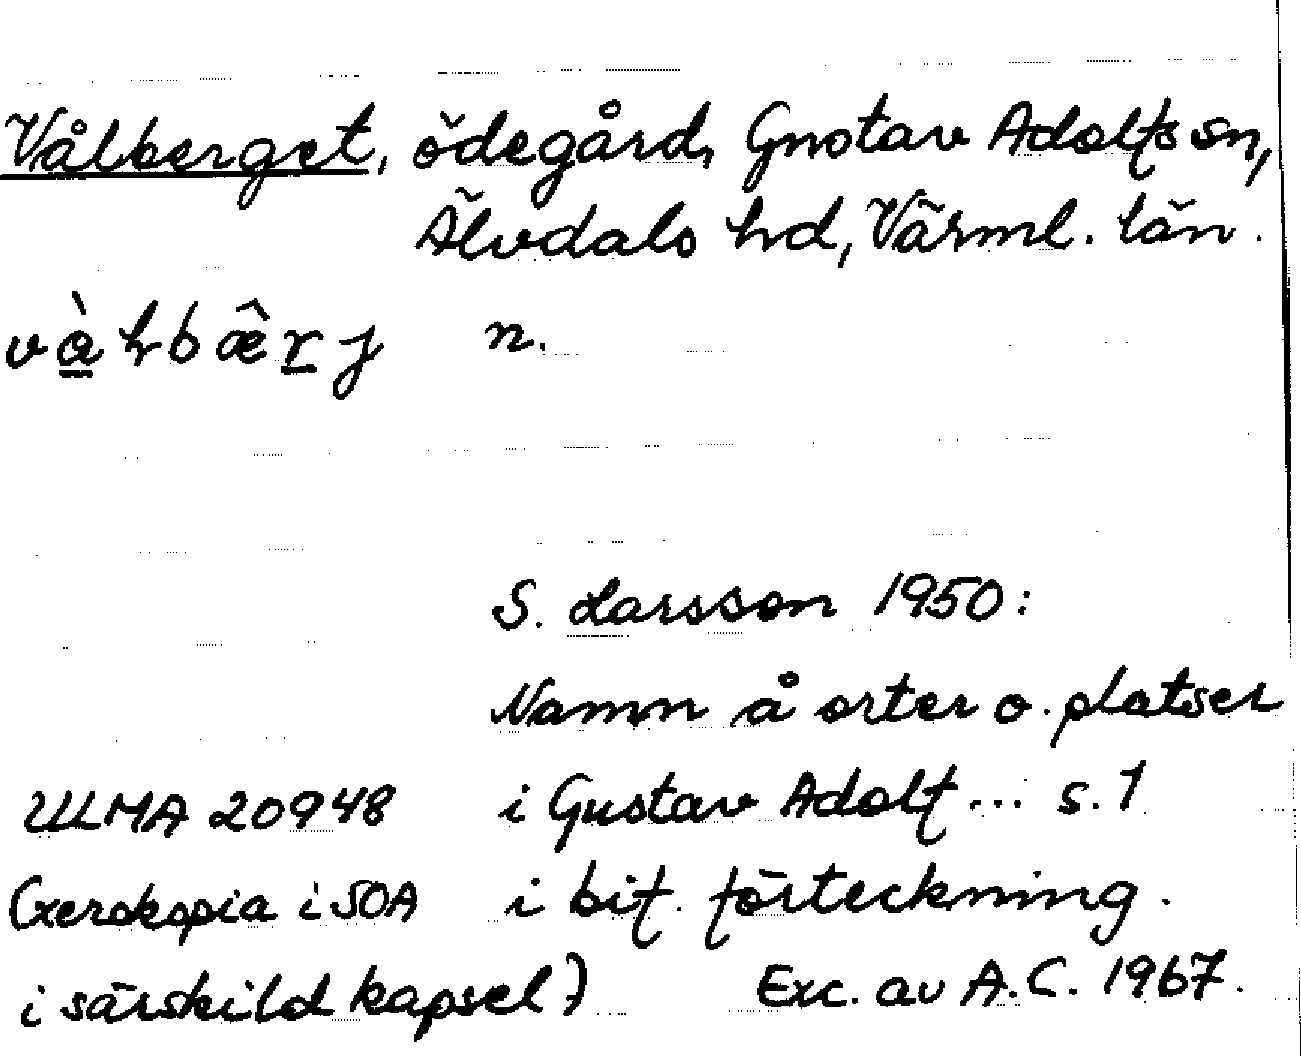 Vålberget, ödegård, Gustav Adolfs sn,
Älvdals hd, Värml. län.
n.
S. Larsson 1950:
Namn å orter o. platser
ULMA 20948 i Gustav Adolf... s. 1
(xerokopia i SOA i bif. förteckning.
i särskild kapsel) Exc. av A.C. 1967.